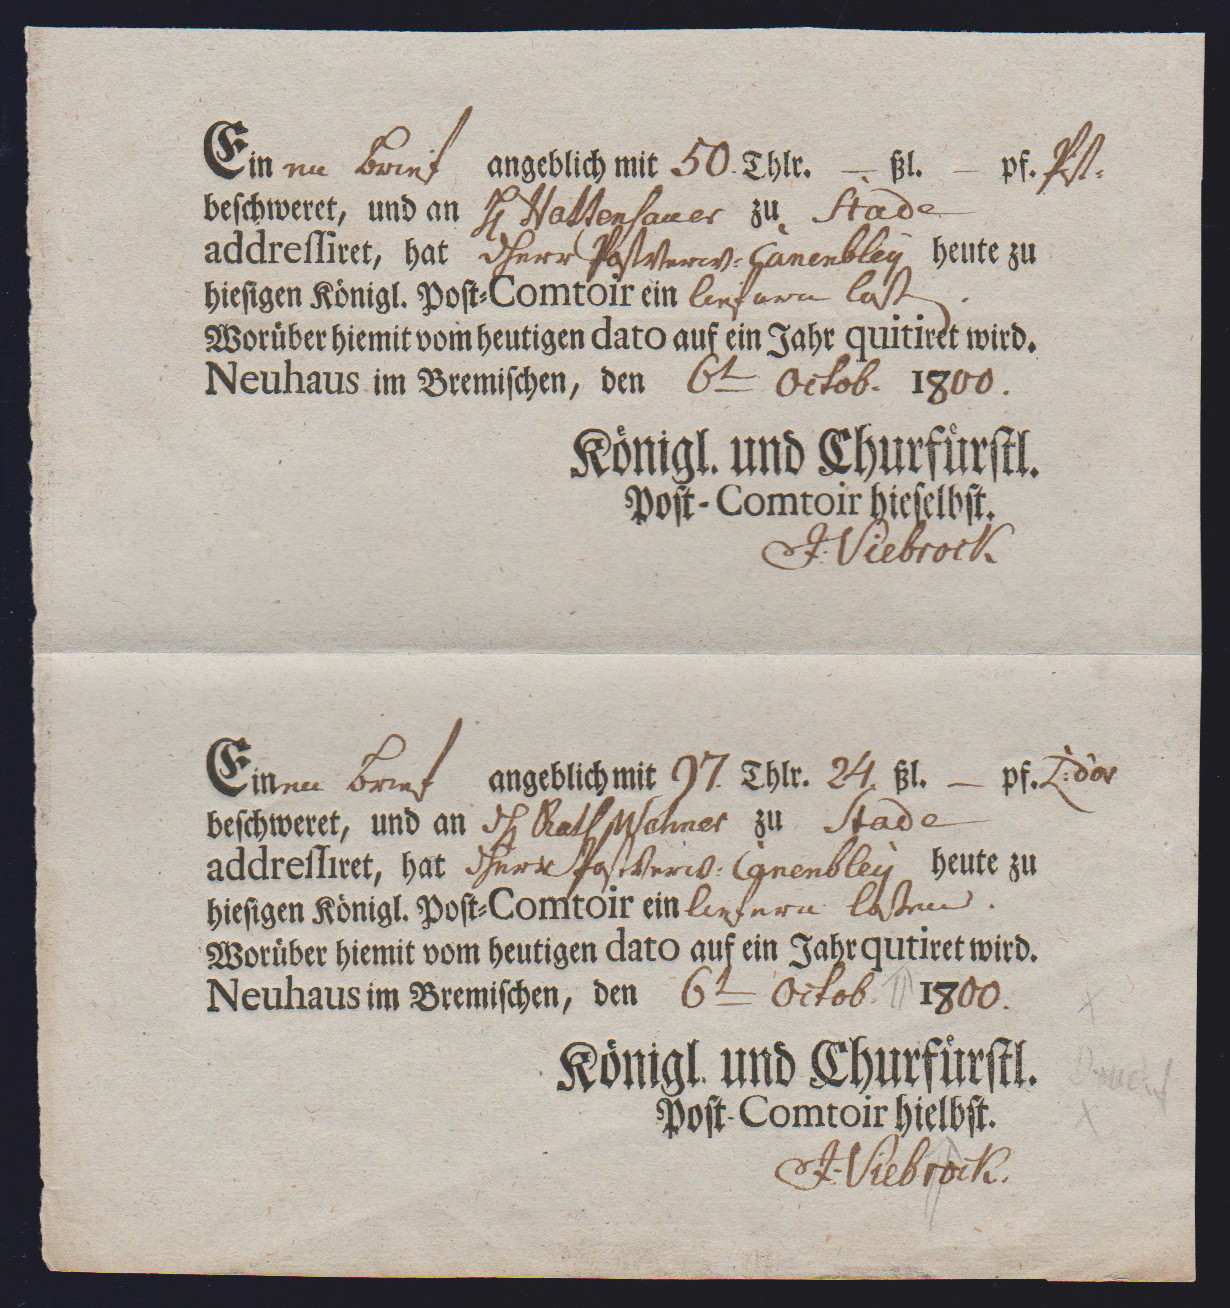 Einen Brief angeblich mit 50. Thlr. — ßl. — pf. Pst.
beschweret, und an H Hattensauer zu Stade
addressiret, hat dHerr Postverw: Canenbley heute zu
hiesigen Königl. Post-Comtoir ein liefern laßen.
Worüber hiemit vom heutigen dato auf ein Jahr quitiret wird.
Neuhaus im Bremischen, den 6t Octob. 1800.
Königl. und Churfürstl.
Post-Comtoir hieselbst.
J. Viebrock
Einen Brief angeblich mit 97. Thlr. 24. ßl. — pf. L:dor
beschweret, und an dH Rath zu Stade
addressiret, hat dHerr Postverw: Canenbley heute zu
hiesigen Königl. Post-Comtoir ein liefern laßen.
Worüber hiemit vom heutigen dato auf ein Jahr qutiret wird.
Neuhaus im Bremischen, den 6t Octob. 1800.
Königl. und Churfürstl.
Post-Comtoir hielbst.
J. Viebrock.